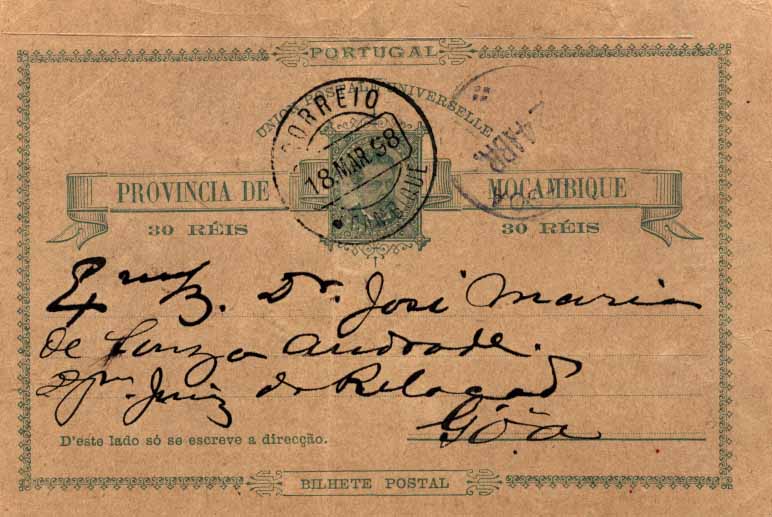 PORTUGAL
UNION POSTALE UNIVERSELLE
CORREIO
18.MAR.98
MOÇAMBIQUE
4 ABR.
PROVINCIA DE MOÇAMBIQUE
30 RÉIS 30 RÉIS
Dr. José Maria
de Souza Andrade.
Juiz da Relação
Gôa
D'este lado só se escreve a direcção.
BILHETE POSTAL